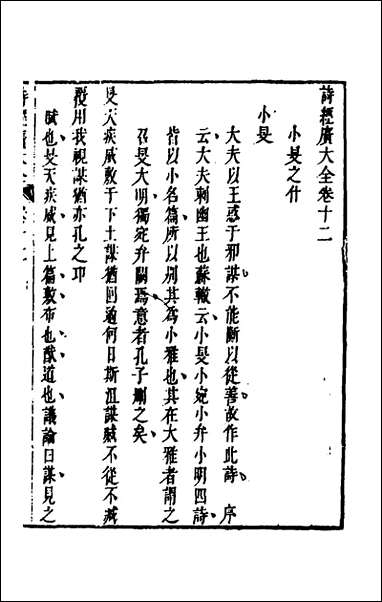 詩經廣大全卷十二
小旻之什
小旻
大夫以王惑于邪謀不能斷以從善故作此詩 序
云大夫刺幽王也蘇轍云小旻小宛小弁小明四詩
皆以小名篇所以別其為小雅也其在大雅者謂之
召旻大明獨宛弁闕焉意者孔子刪之矣
旻天疾威敷于下土謀猶回遹何日斯沮謀臧不從不臧
覆用我視謀猶亦孔之邛
賦也旻天疾威見上篇敷布也猷道也議論曰謀見之